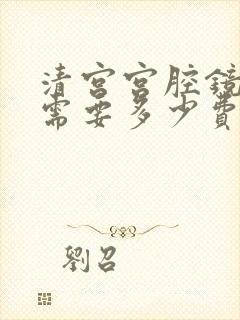 清宫宫腔镜
需要多少费
劉召